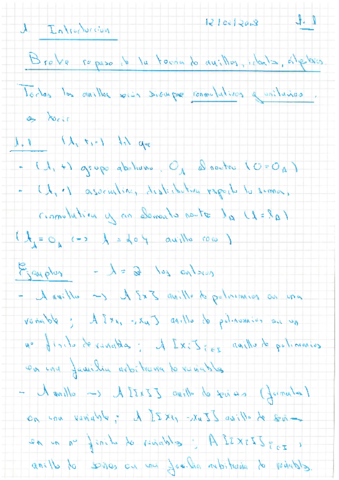 12/02/2008 1.1
1 Introducción
Breve repaso de la teoría de anillos, ideales, álgebras
Todos los anillos serán siempre conmutativos y unitarios.
es decir
1.1 (A, +, ·) tal que
- (A, +) grupo abeliano. 0_A el neutro (0=0_A)
- (A, ·) asociativa, distributiva respecto la suma,
conmutativa y un elemento neutro 1_A (1=1_A)
(1_A = 0_A <-> A = {0} anillo cero)
Ejemplos - A = Z los enteros
- A anillo -> A[x] anillo de polinomios en una
variable; A[x1, ..., xn] anillo de polinomios en un
nº finito de variables; A[xi]i∈I anillo de polinomios
en una familia arbitraria de variables
- A anillo -> A[[x]] anillo de series (formales)
en una variable; A[[x1, ..., xn]] anillo de series
en un nº finito de variables; A[[xi]]i∈I,
anillo de series en una familia arbitraria de variables.